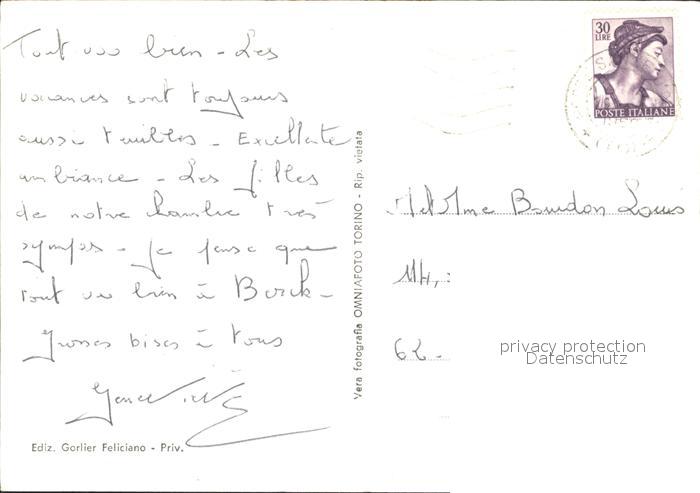 Tout va bien - Les
vacances sont toujours
aussi terribles - Excellente
ambiance - Les filles
de notre chambre très
sympas - je pense que
tout va bien à Berck -
Grosses bises à tous
Geneviève
Ediz. Gorlier Feliciano - Priv.
Vera fotografia OMNIAFOTO TORINO - Rip. vietata
30
LIRE
POSTE ITALIANE
M et Mme Bourdon Louis
114,
62 -
privacy protection
Datenschutz